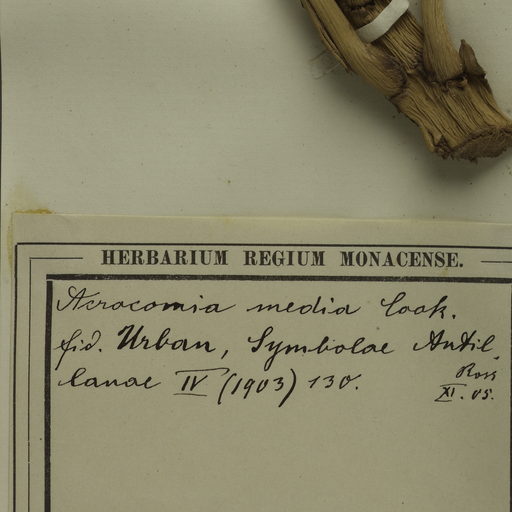 HERBARIUM REGIUM MONACENSE.
Acrocomia media Cook.
fid. Urban, Symbolae Antil
lanae IV (1903) 130.
Ross
XI. 05.